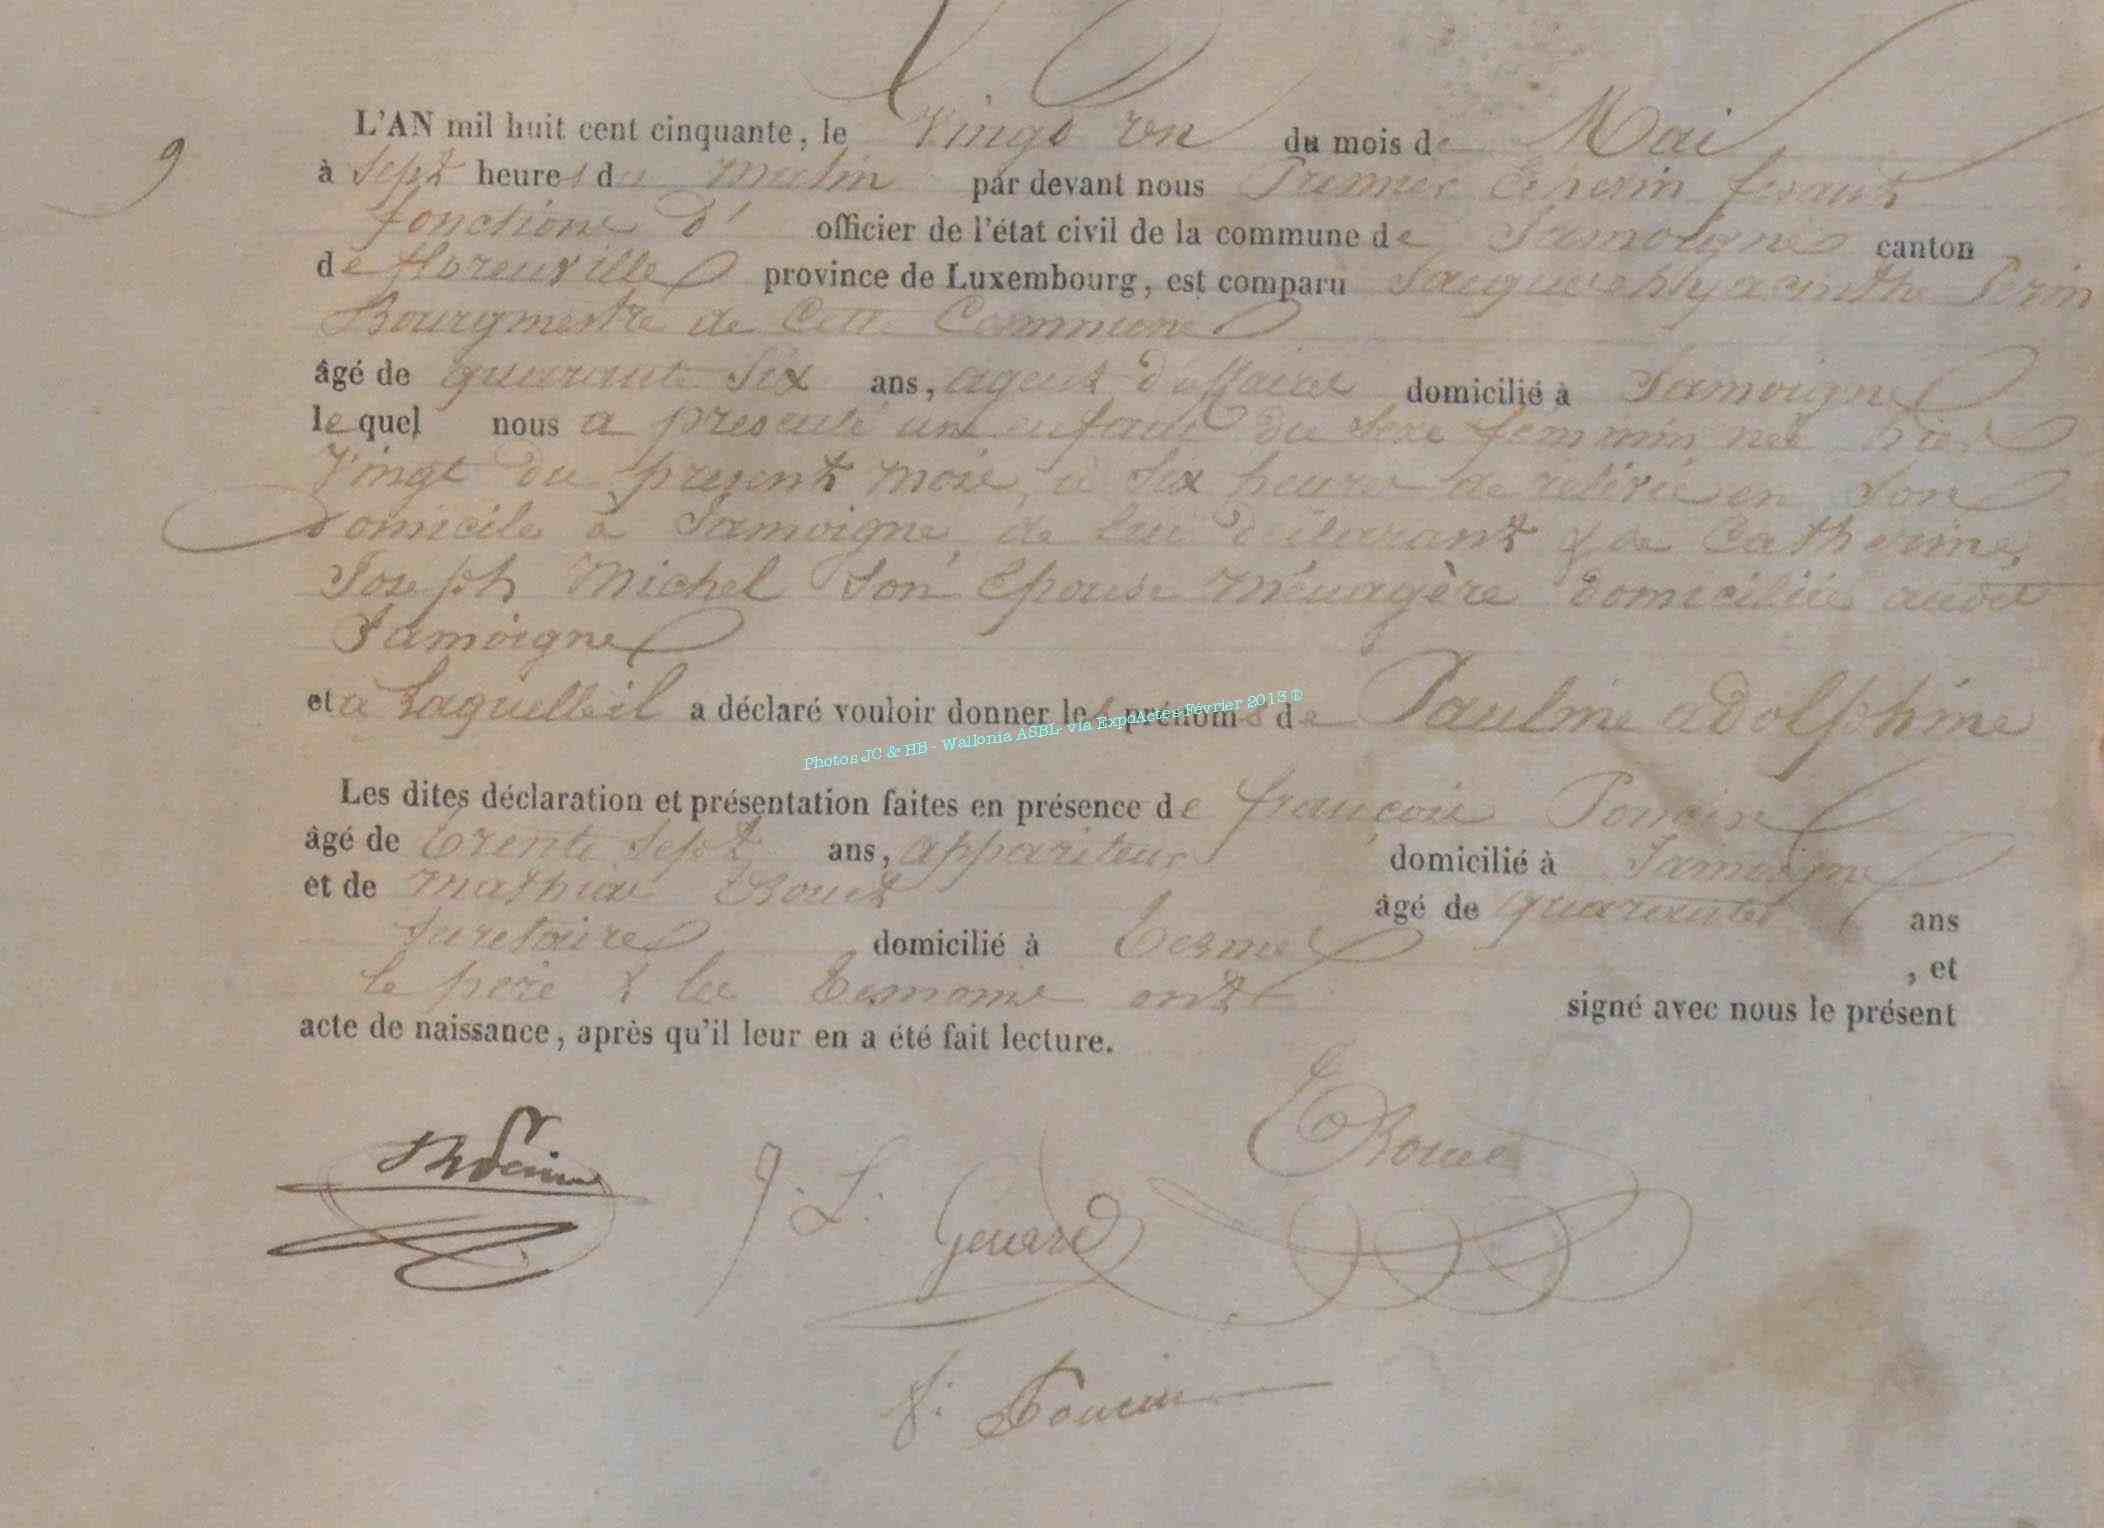 9
L'AN mil huit cent cinquante, le Vingt un du mois de Mai
à Sept heures du matin par devant nous Premier Echevin fesant
fonctions d' officier de l'état civil de la commune de Jamoigne canton
de florenville province de Luxembourg, est comparu Jacques hyacinthe Perin
Bourgmestre de Cette Commune
âgé de quarante Six ans, agent d'affaires domicilié à Jamoigne
le quel nous a presenté un enfant du Sexe feminin neé hier
Vingt du present mois, à Six heures de relivée en Son
Domicile à Jamoigne, de lui déclarant & de Catherine
Joseph Michel Son Epouse ménagère domiciliée audit
Jamoigne
et à Laquelle il a déclaré vouloir donner les prénoms de Pauline adolphine
Photos JC & HB - Wallonia ASBL- via ExpoActes Février 2013 ®
Les dites déclaration et présentation faites en présence de françois Poncin
âgé de trente Sept ans, appariteur domicilié à Jamoigne
et de mathias Rouet âgé de quarante ans
Secretaire domicilié à termes , et
le père & les temoins ont signé avec nous le présent
acte de naissance, après qu'il leur en a été fait lecture.
J. L. Genard
f. Poncin